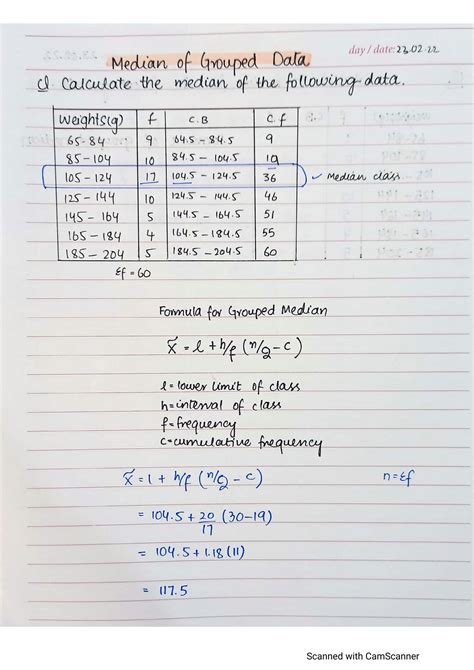 day / date: 23.02.22
Median of Grouped Data
Q. Calculate the median of the following data.
Weights(g) f C.B C.f
65-84 9 64.5-84.5 9
85-104 10 84.5-104.5 19
105-124 17 104.5-124.5 36 Median class
125-144 10 124.5-144.5 46
145-164 5 144.5-164.5 51
165-184 4 164.5-184.5 55
185-204 5 184.5-204.5 60
Σf = 60
Formula for Grouped Median
x̃ = l + h/f (n/2 - c)
l = lower limit of class
h = interval of class
f = frequency
c = cumulative frequency
x̃ = l + h/f (n/2 - c) n = Σf
= 104.5 + 20/17 (30-19)
= 104.5 + 1.18 (11)
= 117.5
Scanned with CamScanner